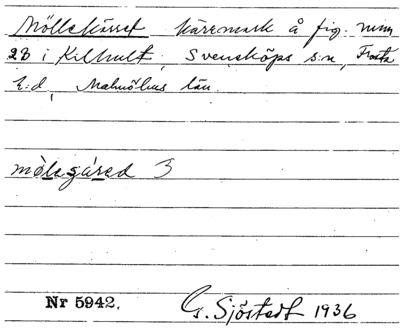 Möllekärret kärrmark å fig. num
28 i Kilhult, Svensköps s:n, Frosta
h:d, Malmöhus län.
mölegáred 3
Nr 5942.
G. Sjöstedt 1936